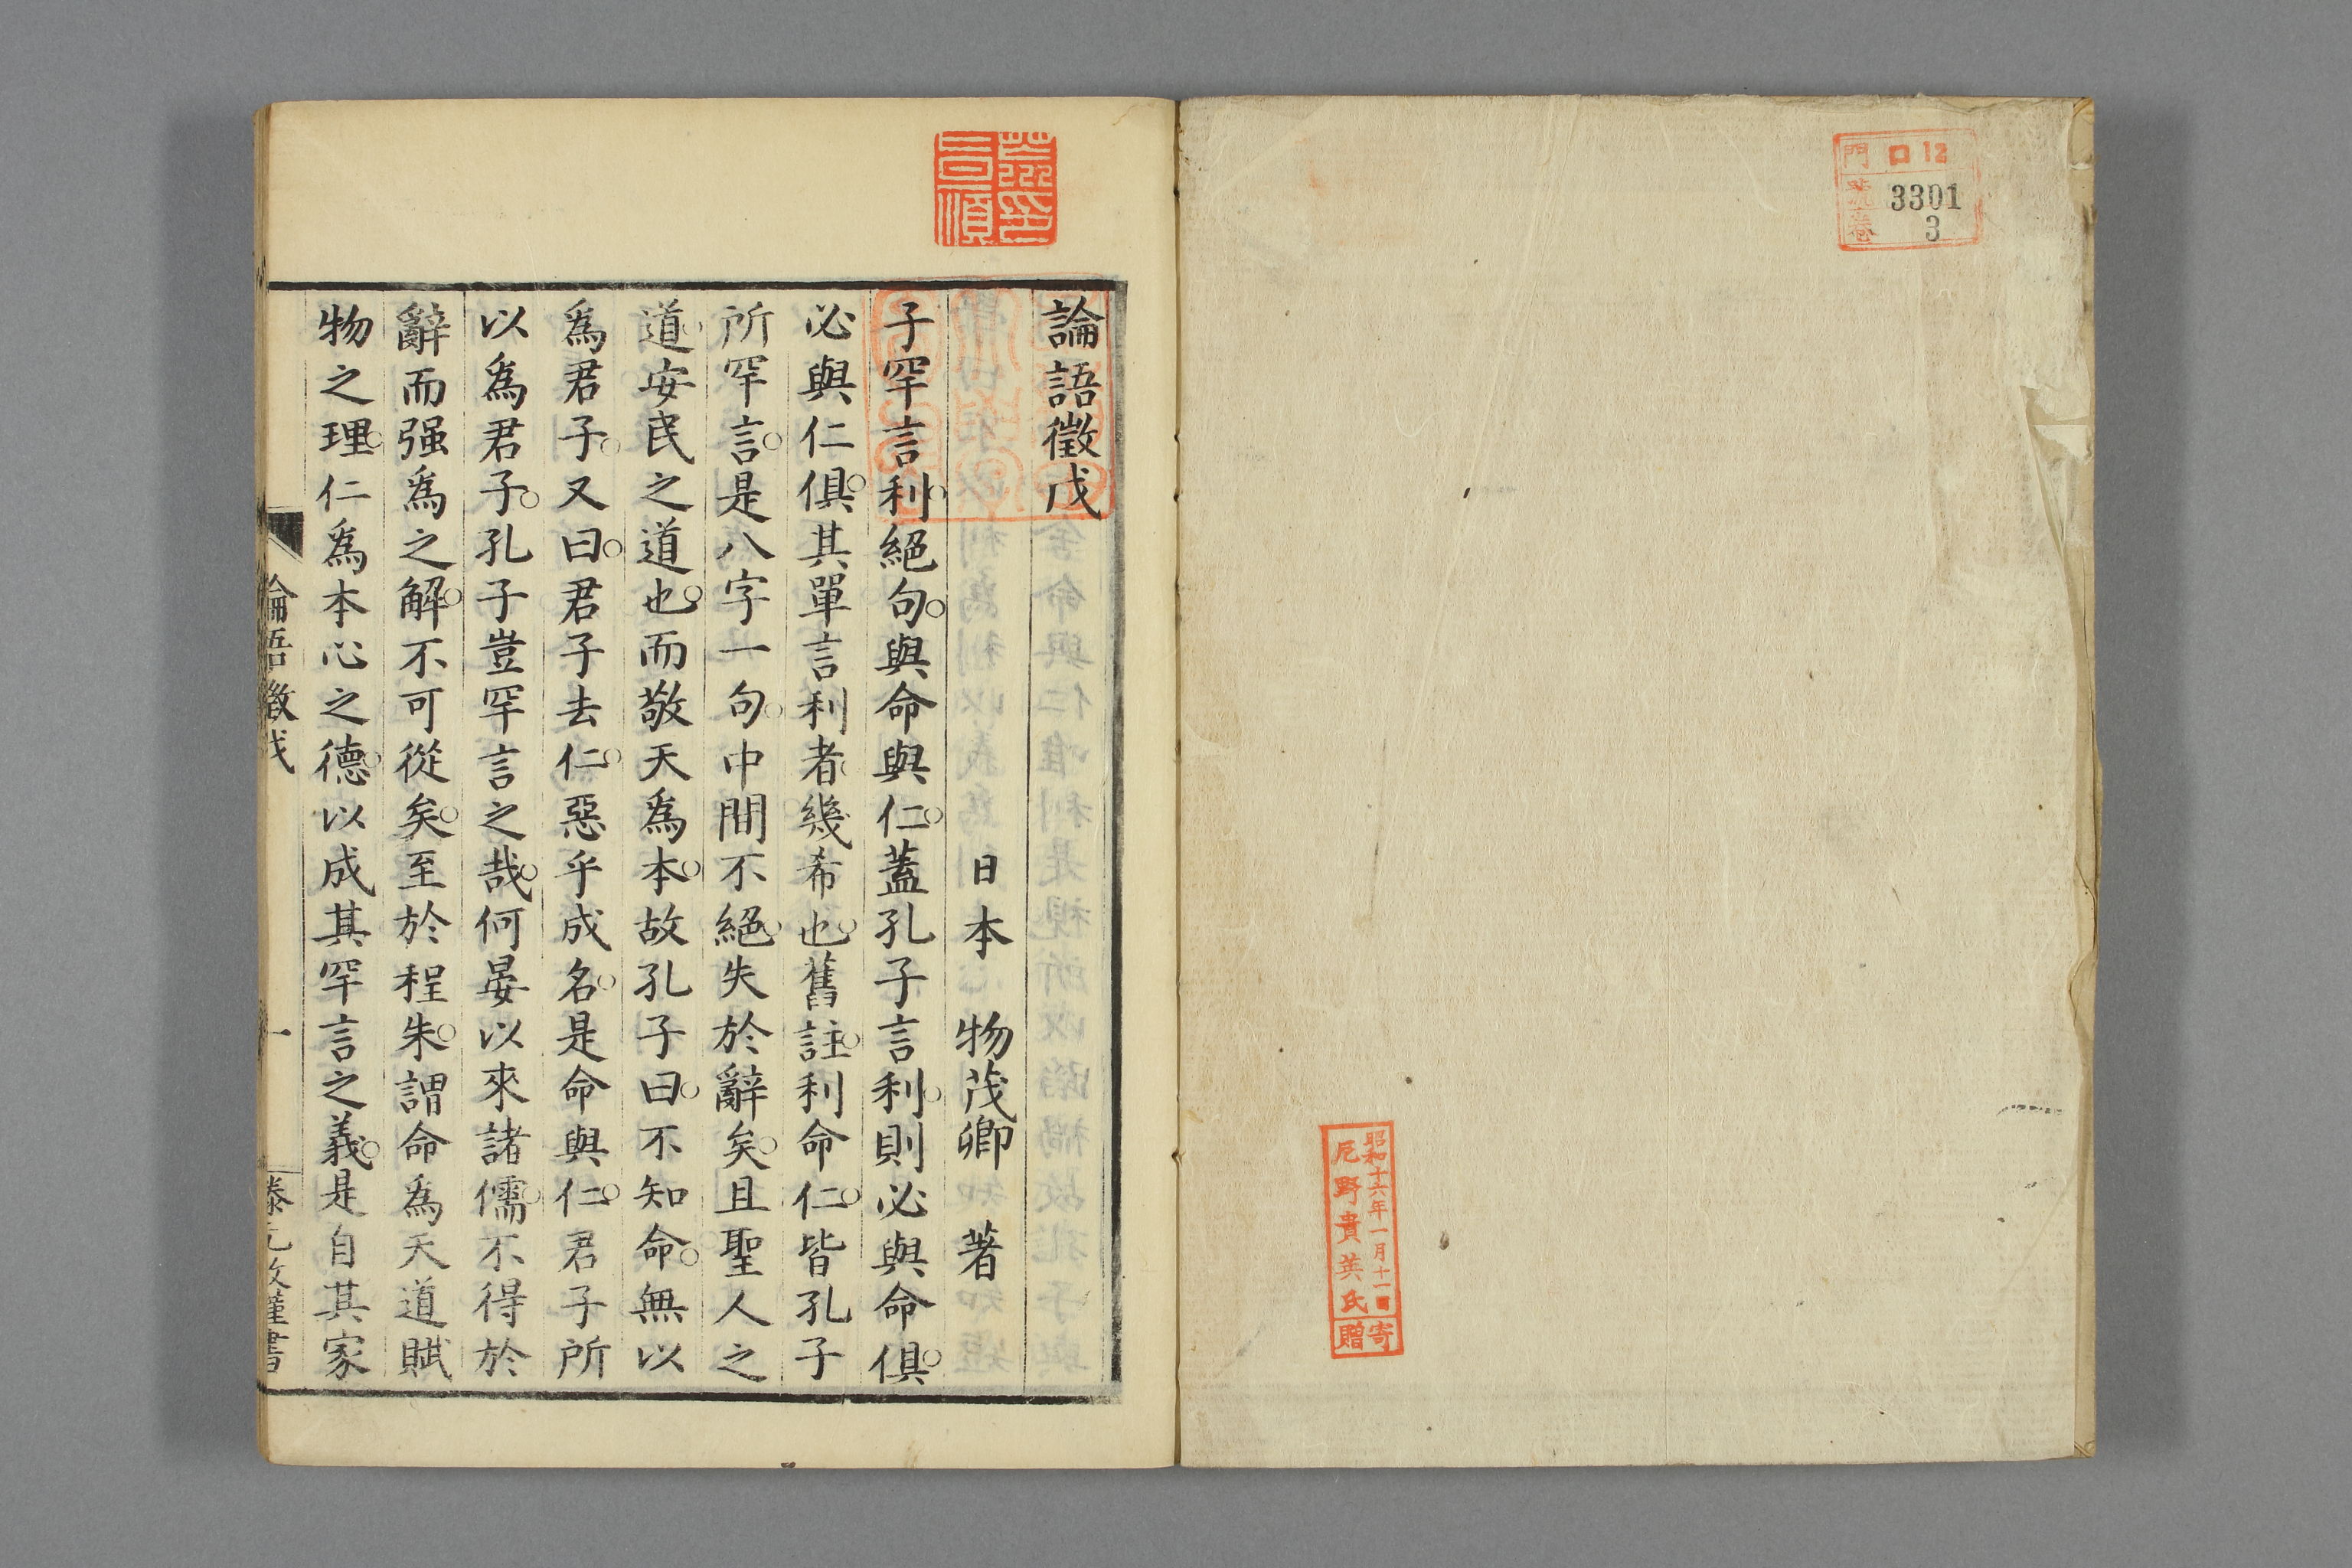 門 ロ 12
號 3301
卷 3
昭和十六年一月十一日寄
尾野貴英氏贈
論語徵戊
日本 物茂卿 著
子罕言利絕句與命與仁蓋孔子言利則必與命俱
必與仁俱其單言利者幾希也舊註利命仁皆孔子
所罕言是八字一句中間不絕失於辭矣且聖人之
道安民之道也而敬天爲本故孔子曰不知命無以
爲君子又曰君子去仁惡乎成名是命與仁君子所
以爲君子孔子豈罕言之哉何晏以來諸儒不得於
辭而强爲之解不可從矣至於程朱謂命爲天道賦
物之理仁爲本心之德以成其罕言之義是自其家
論語徵戊 一